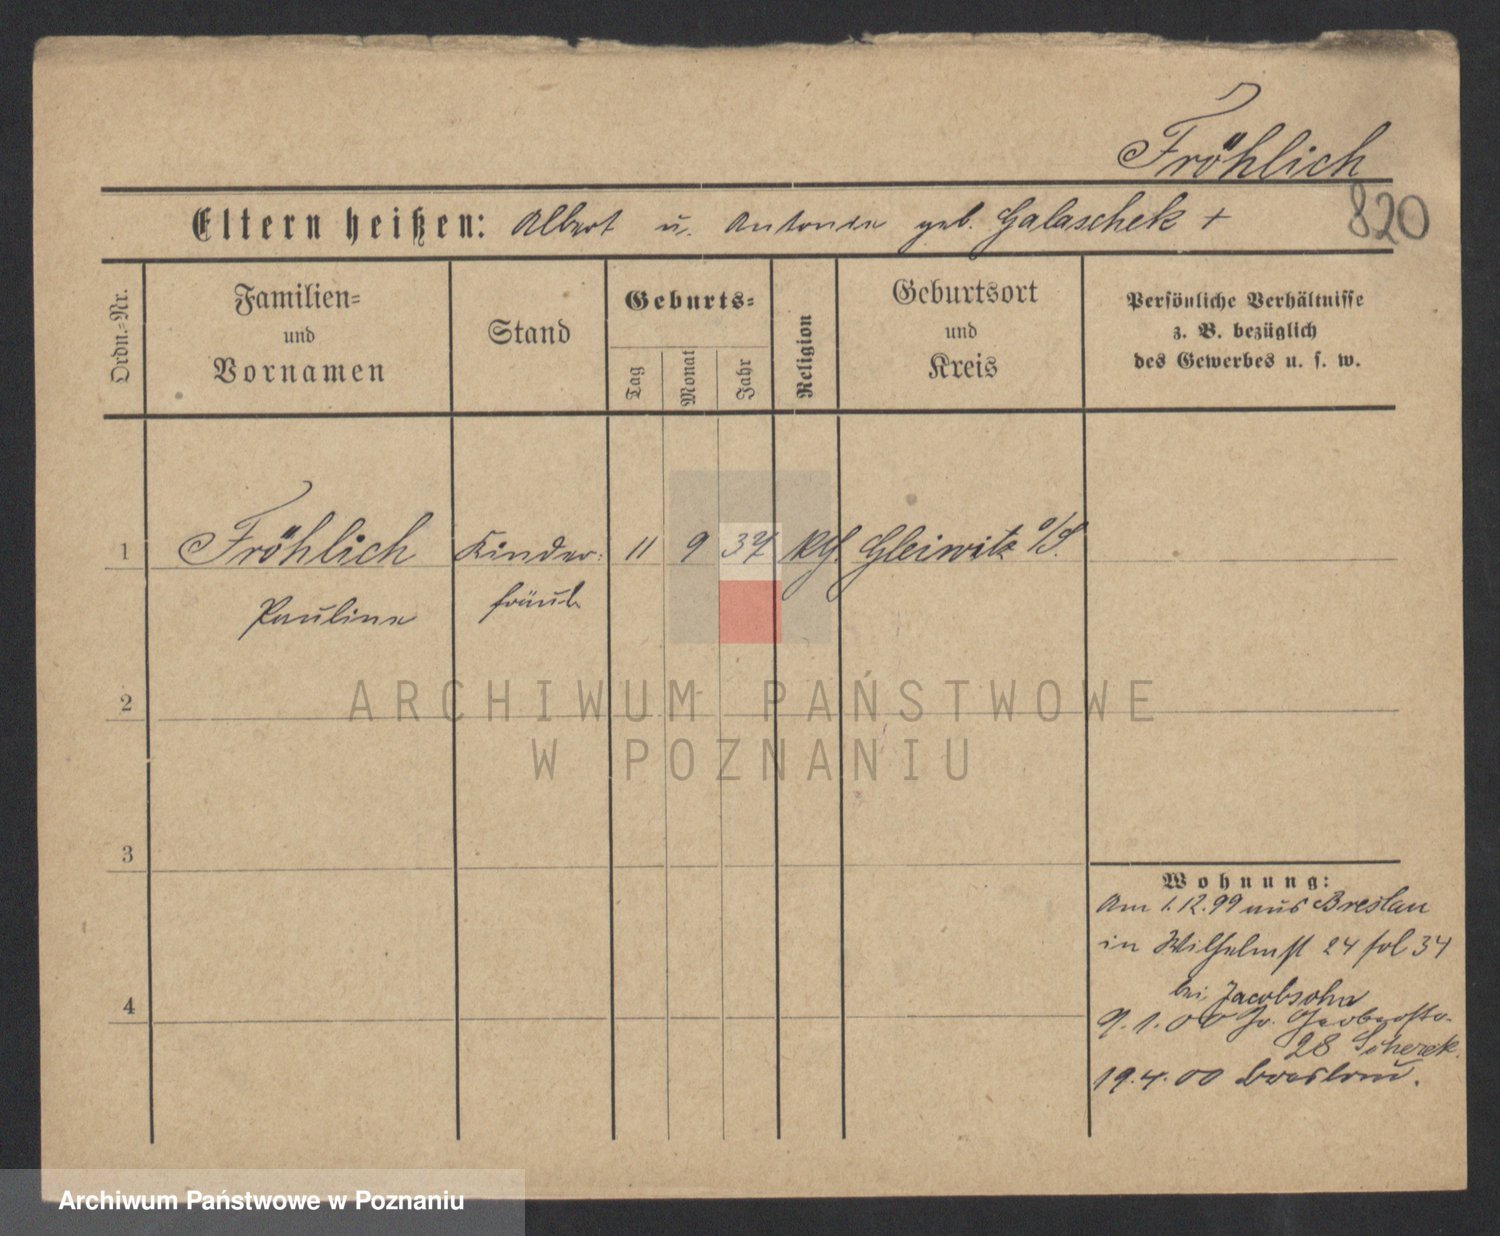 Fröhlich
820
Eltern heißen: Albert u. Antonie geb. Galaschek +
Ordn.-Nr.
Familien-
und
Vornamen
Stand
Geburts-
Tag
Monat
Jahr
Religion
Geburtsort
und
Kreis
Persönliche Verhältnisse
z. B. bezüglich
des Gewerbes u. s. w.
1 Fröhlich Kinder- 11 9 37 Kth. Gleiwitz O/S.
Pauline fräul.
2
ARCHIWUM PAŃSTWOWE
W POZNANIU
3
Wohnung:
Am 1.12.99 aus Breslau
in Wilhelmst 24 fol 34
bei Jacobsohn
4
9.1.00
28 Scherek
19.4.00 Breslau.
Archiwum Państwowe w Poznaniu